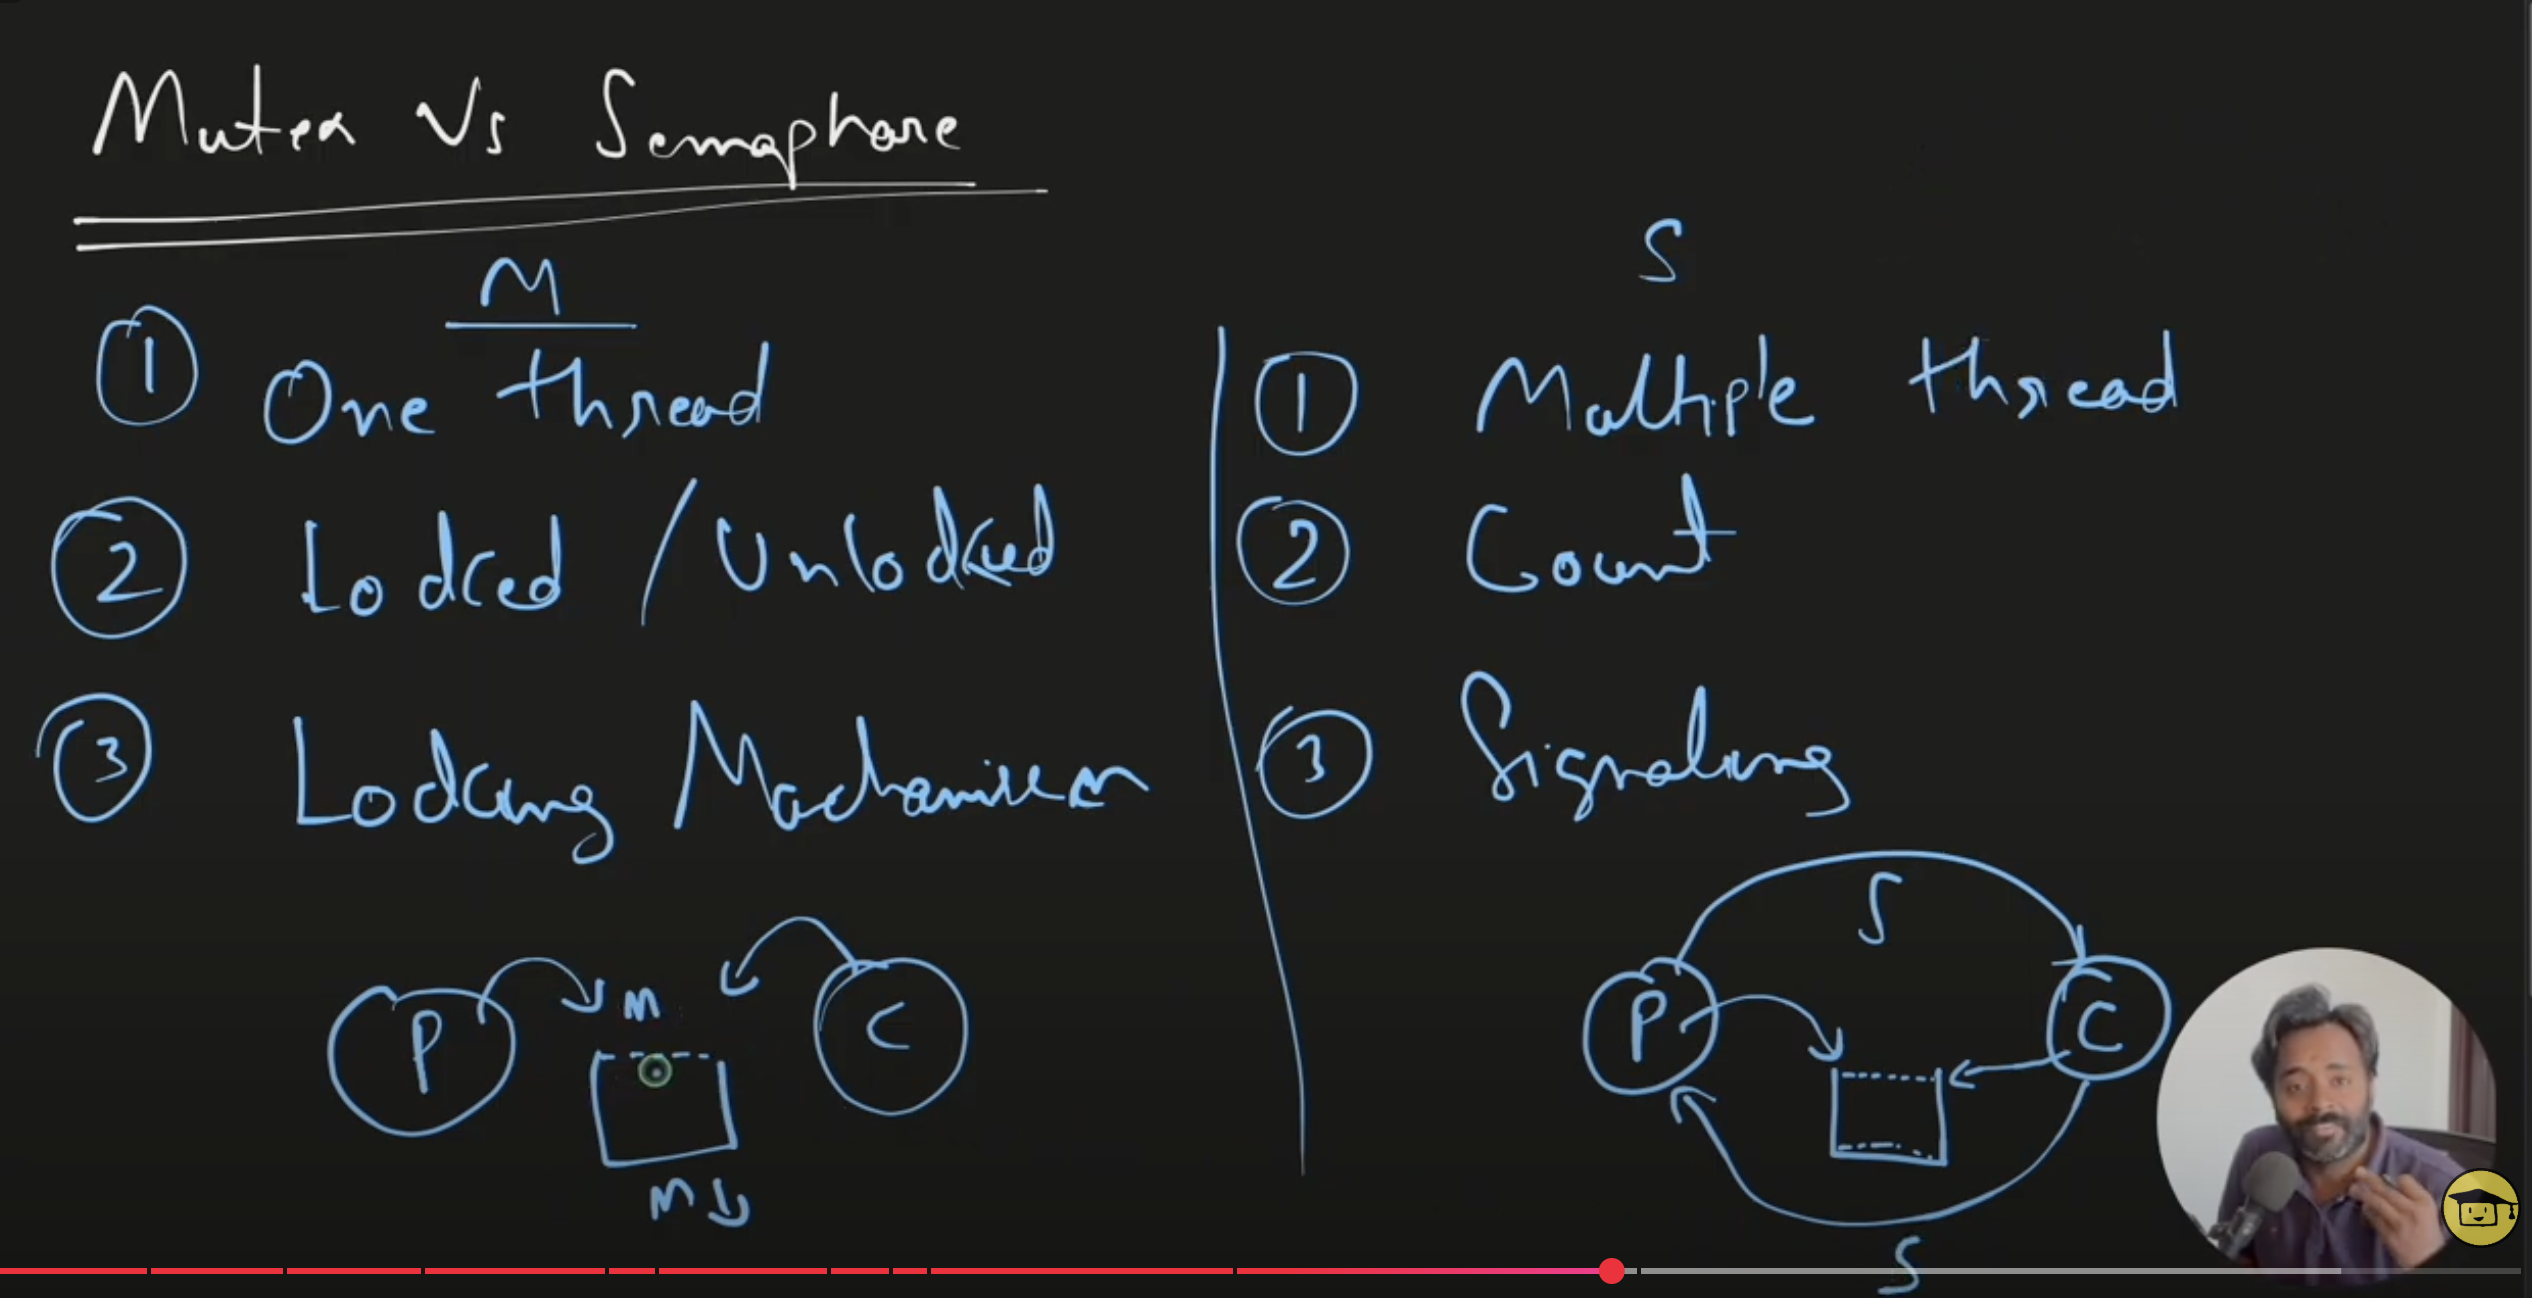 Mutex Vs Semaphore
M
① One thread
② Locked / Unlocked
③ Locking Machanism
P
M
C
M
S
① Multiple thread
② Count
③ Signaling
S
P
C
S